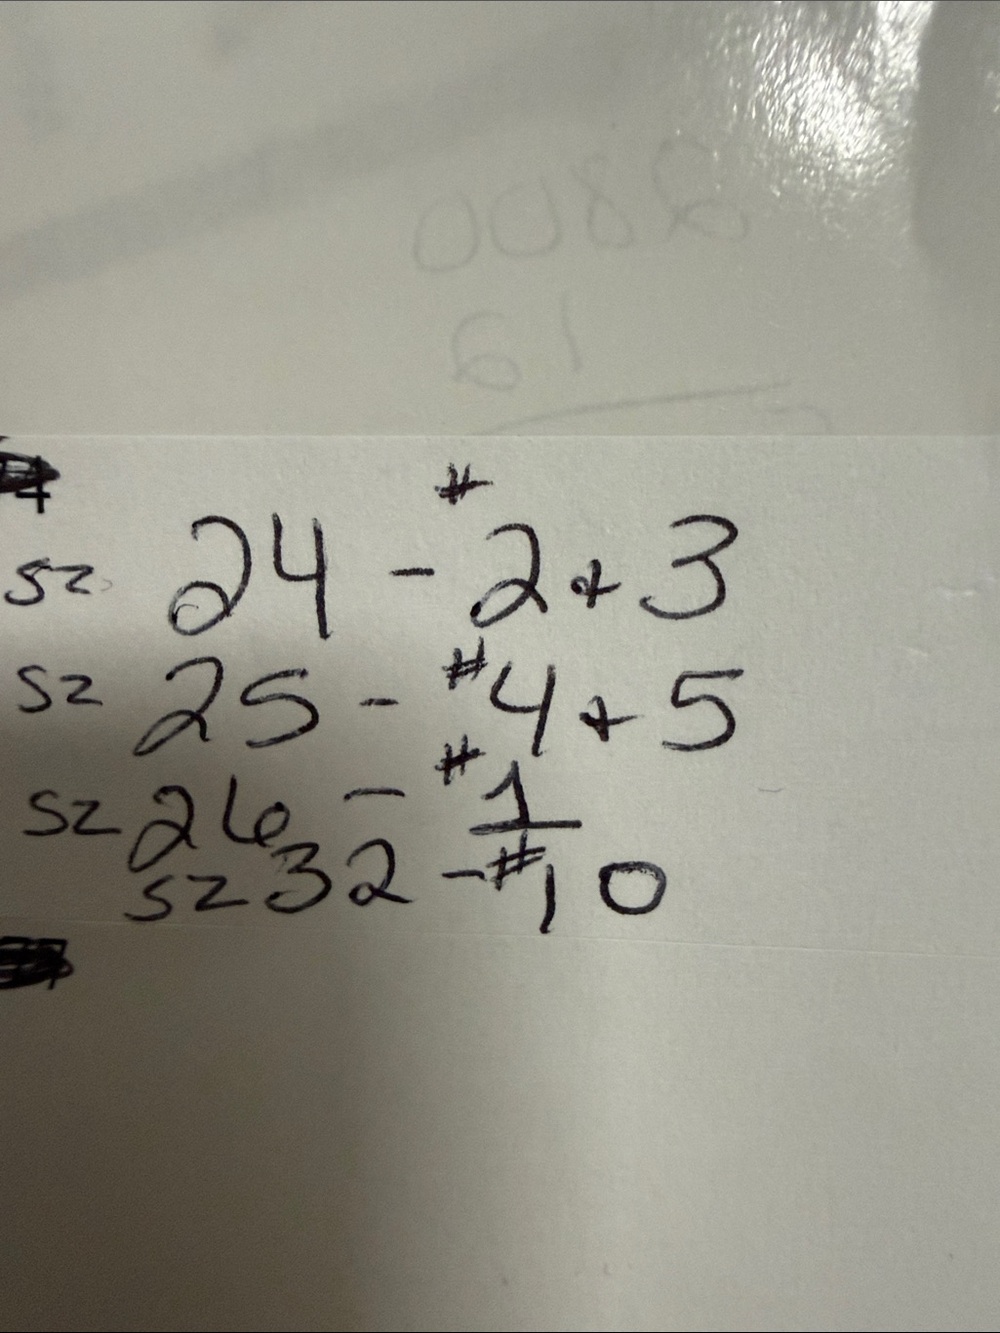 0088
61
4
sz 24 - #2 + 3
sz 25 - #4 + 5
sz 26 - #1
sz 32 - #10